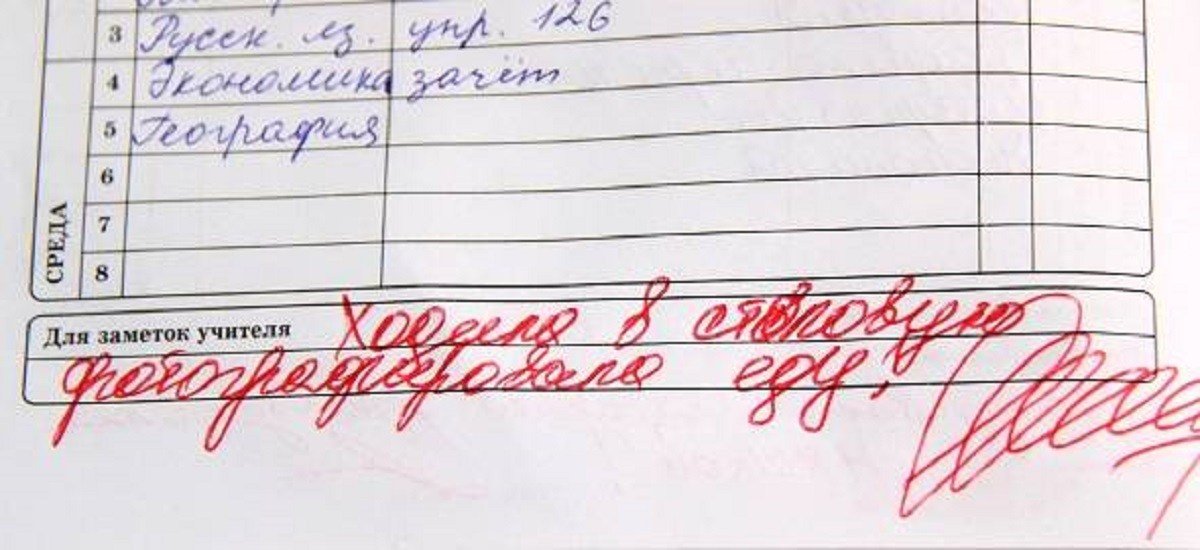 3 Русск. яз. упр. 126
4 Экономика зачёт
5 География
6
7
8
СРЕДА
Для заметок учителя Ходила в столовую
фотографировала еду!